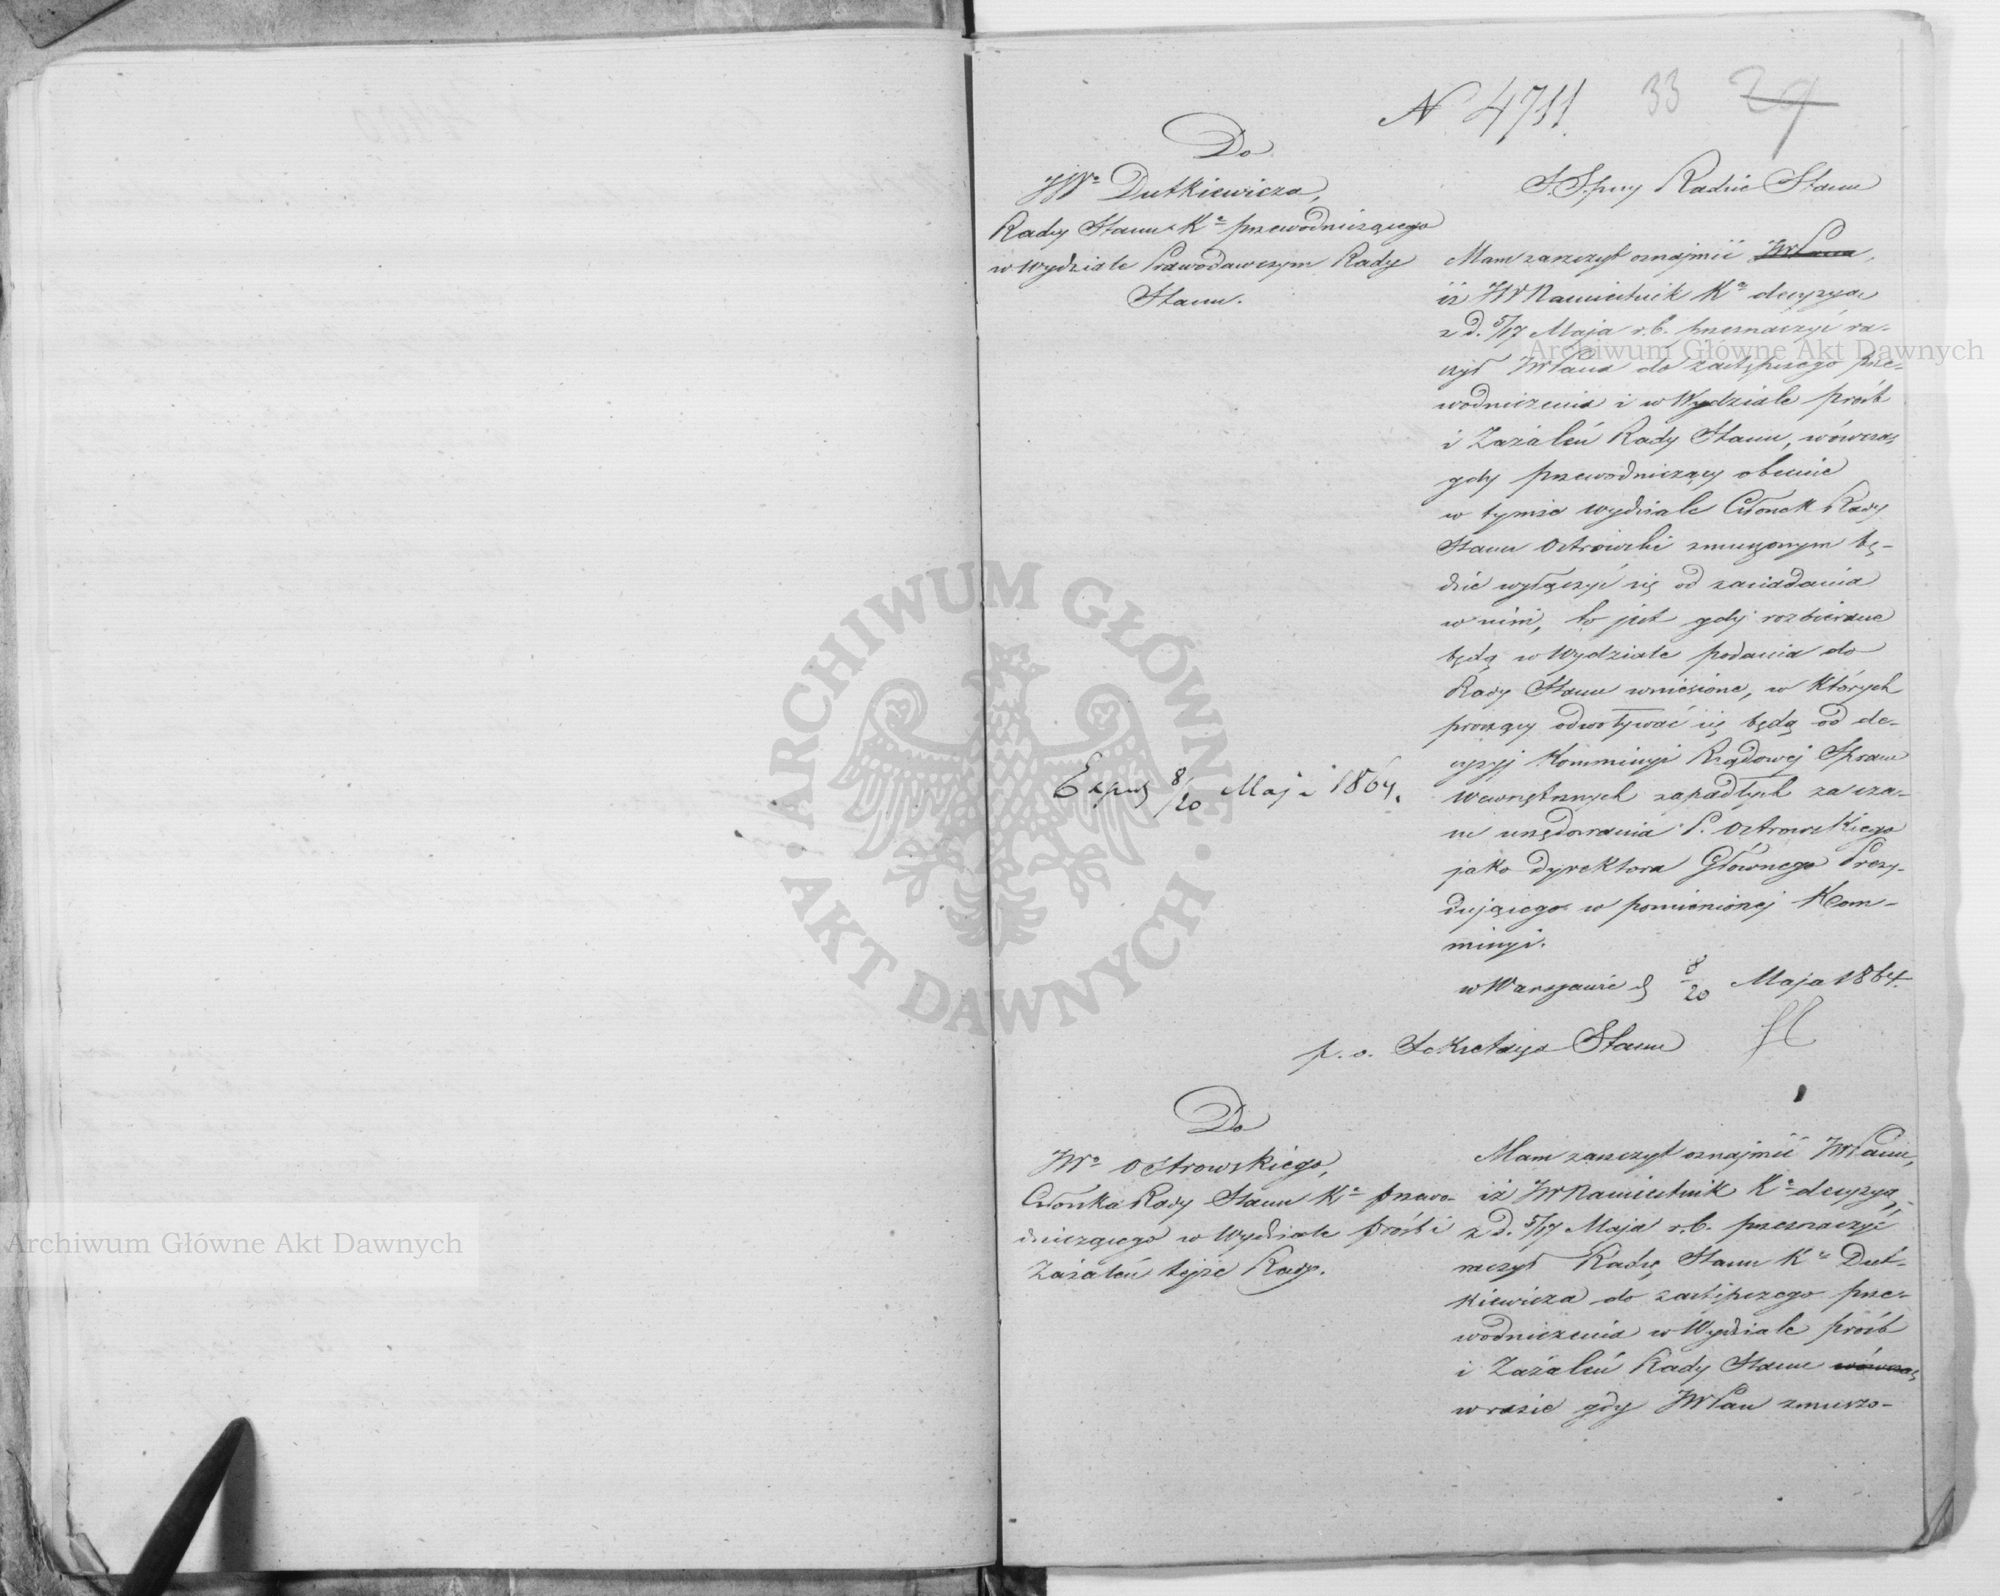 N 4711.
33 29
Do
JWo Dutkiewicza,
Radcy Stanu Ko przewodniczącego
w Wydziale Prawodawczym Rady
Stanu.
Radzie Stanu
Mam zaszczyt oznajmić JWPanu,
iż JW Namiestnik Ka decyzyą
z d. 5/17 Maja r. b. przeznaczyć ra-
czył JWPana do zastępczego prze-
wodniczenia i w Wydziale próśb
i Zażaleń Rady Stanu, wówczas
gdy przewodniczący obecnie
w tymże wydziale Członek Rady
Stanu Ostrowski zmuszonym bę-
dzie wyłączyć się od zasiadania
w nim, to jest gdy rozbierane
będą w Wydziale podania do
Rady Stanu wniesione, w których
proszący odwoływać się będą od de-
cyzyj Kommissyi Rządowej Spraw
Wewnętrznych zapadłych za cza-
su urzędowania P. Ostrowskiego
jako Dyrektora Głównego Prezy-
dującego w pomienionej Kom-
missyi.
w Warszawie d 8/20 Maja 1864.
Exped 8/20 Maja 1864.
p. o. Sekretarza Stanu
Do
JWo Ostrowskiego,
Członka Rady Stanu Ka przewo-
dniczącego w Wydziale próśb i
Zażaleń tejże Rady.
Mam zaszczyt oznajmić JWPanu,
iż JW Namiestnik Ka decyzyą
z d. 5/17 Maja r. b. przeznaczyć
raczył Radcę Stanu Ka Dut-
kiewicza do zastępczego prze-
wodniczenia w Wydziale próśb
i Zażaleń Rady Stanu wówczas
w razie gdy JWPan zmuszo-
Archiwum Główne Akt Dawnych
Archiwum Główne Akt Dawnych
ARCHIWUM GŁÓWNE
AKT DAWNYCH